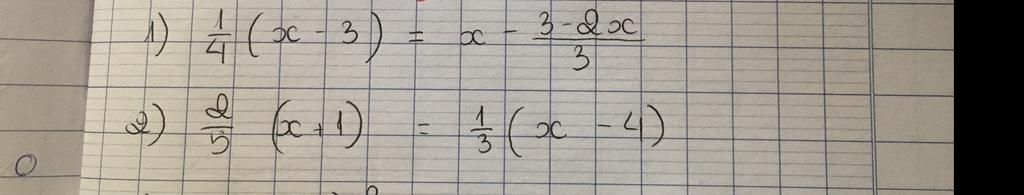 1) 1/4 (x - 3) = x - (3 - 2x)/3
2) 2/5 (x + 1) = 1/3 (x - 4)